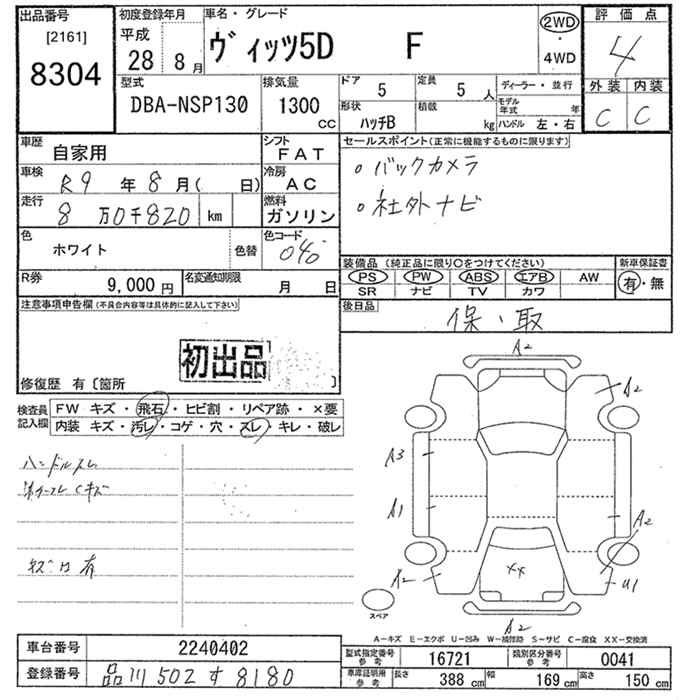 出品番号
[2161]
8304
初度登録年月
平成
28年8月
車名・グレード
ヴィッツ5D F
2WD
・
4WD
評価点
4
型式
DBA-NSP130
排気量
1300
CC
ドア 5
定員 5人
形状 ハッチB
積載 kg
ディーラー・並行
モデル年式 年
ハンドル 左・右
外装 内装
C C
車歴
自家用
シフト
FAT
車検
R9年8月( 日)
冷房
AC
走行
8万0千820 km
燃料
ガソリン
色
ホワイト
色替
色コード
040
R券
9,000円
名変通知期限
月 日
セールスポイント(正常に機能するものに限ります)
。バックカメラ
。社外ナビ
装備品 (純正品に限り○をつけてください)
PS PW ABS エアB AW
SR ナビ TV カワ
新車保証書
有・無
後日品
保・取
注意事項申告欄(不具合内容等は具体的に記入して下さい)
初出品
修復歴 有〔箇所 〕
検査員記入欄
FW キズ・飛石・ヒビ割・リペア跡・×要
内装 キズ・汚レ・コゲ・穴・スレ・キレ・破レ
ハンドルスレ
キズ 有
A2
A2
A3
A1
A2
A2
××
U1
A2
スペア
A-キズ E-エクボ U-凹み W-補修跡 S-サビ C-腐食 XX-交換済
車台番号
2240402
登録番号
品川 502 す 8180
型式指定番号
参考
16721
類別区分番号
参考
0041
車庫証明用
参考
長さ 388 cm
幅 169 cm
高さ 150 cm